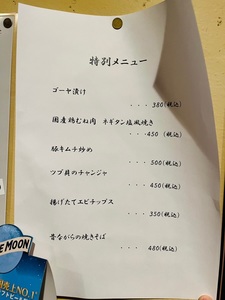 特別メニュー
ゴーヤ漬け
・・・380(税込)
国産鶏むね肉 ネギタン塩風焼き
・・・450 (税込)
豚キムチ炒め
・・・500(税込)
ツブ貝のチャンジャ
・・・450(税込)
揚げたてエビチップス
・・・350(税込)
昔ながらの焼きそば
・・・480(税込)
E MOON